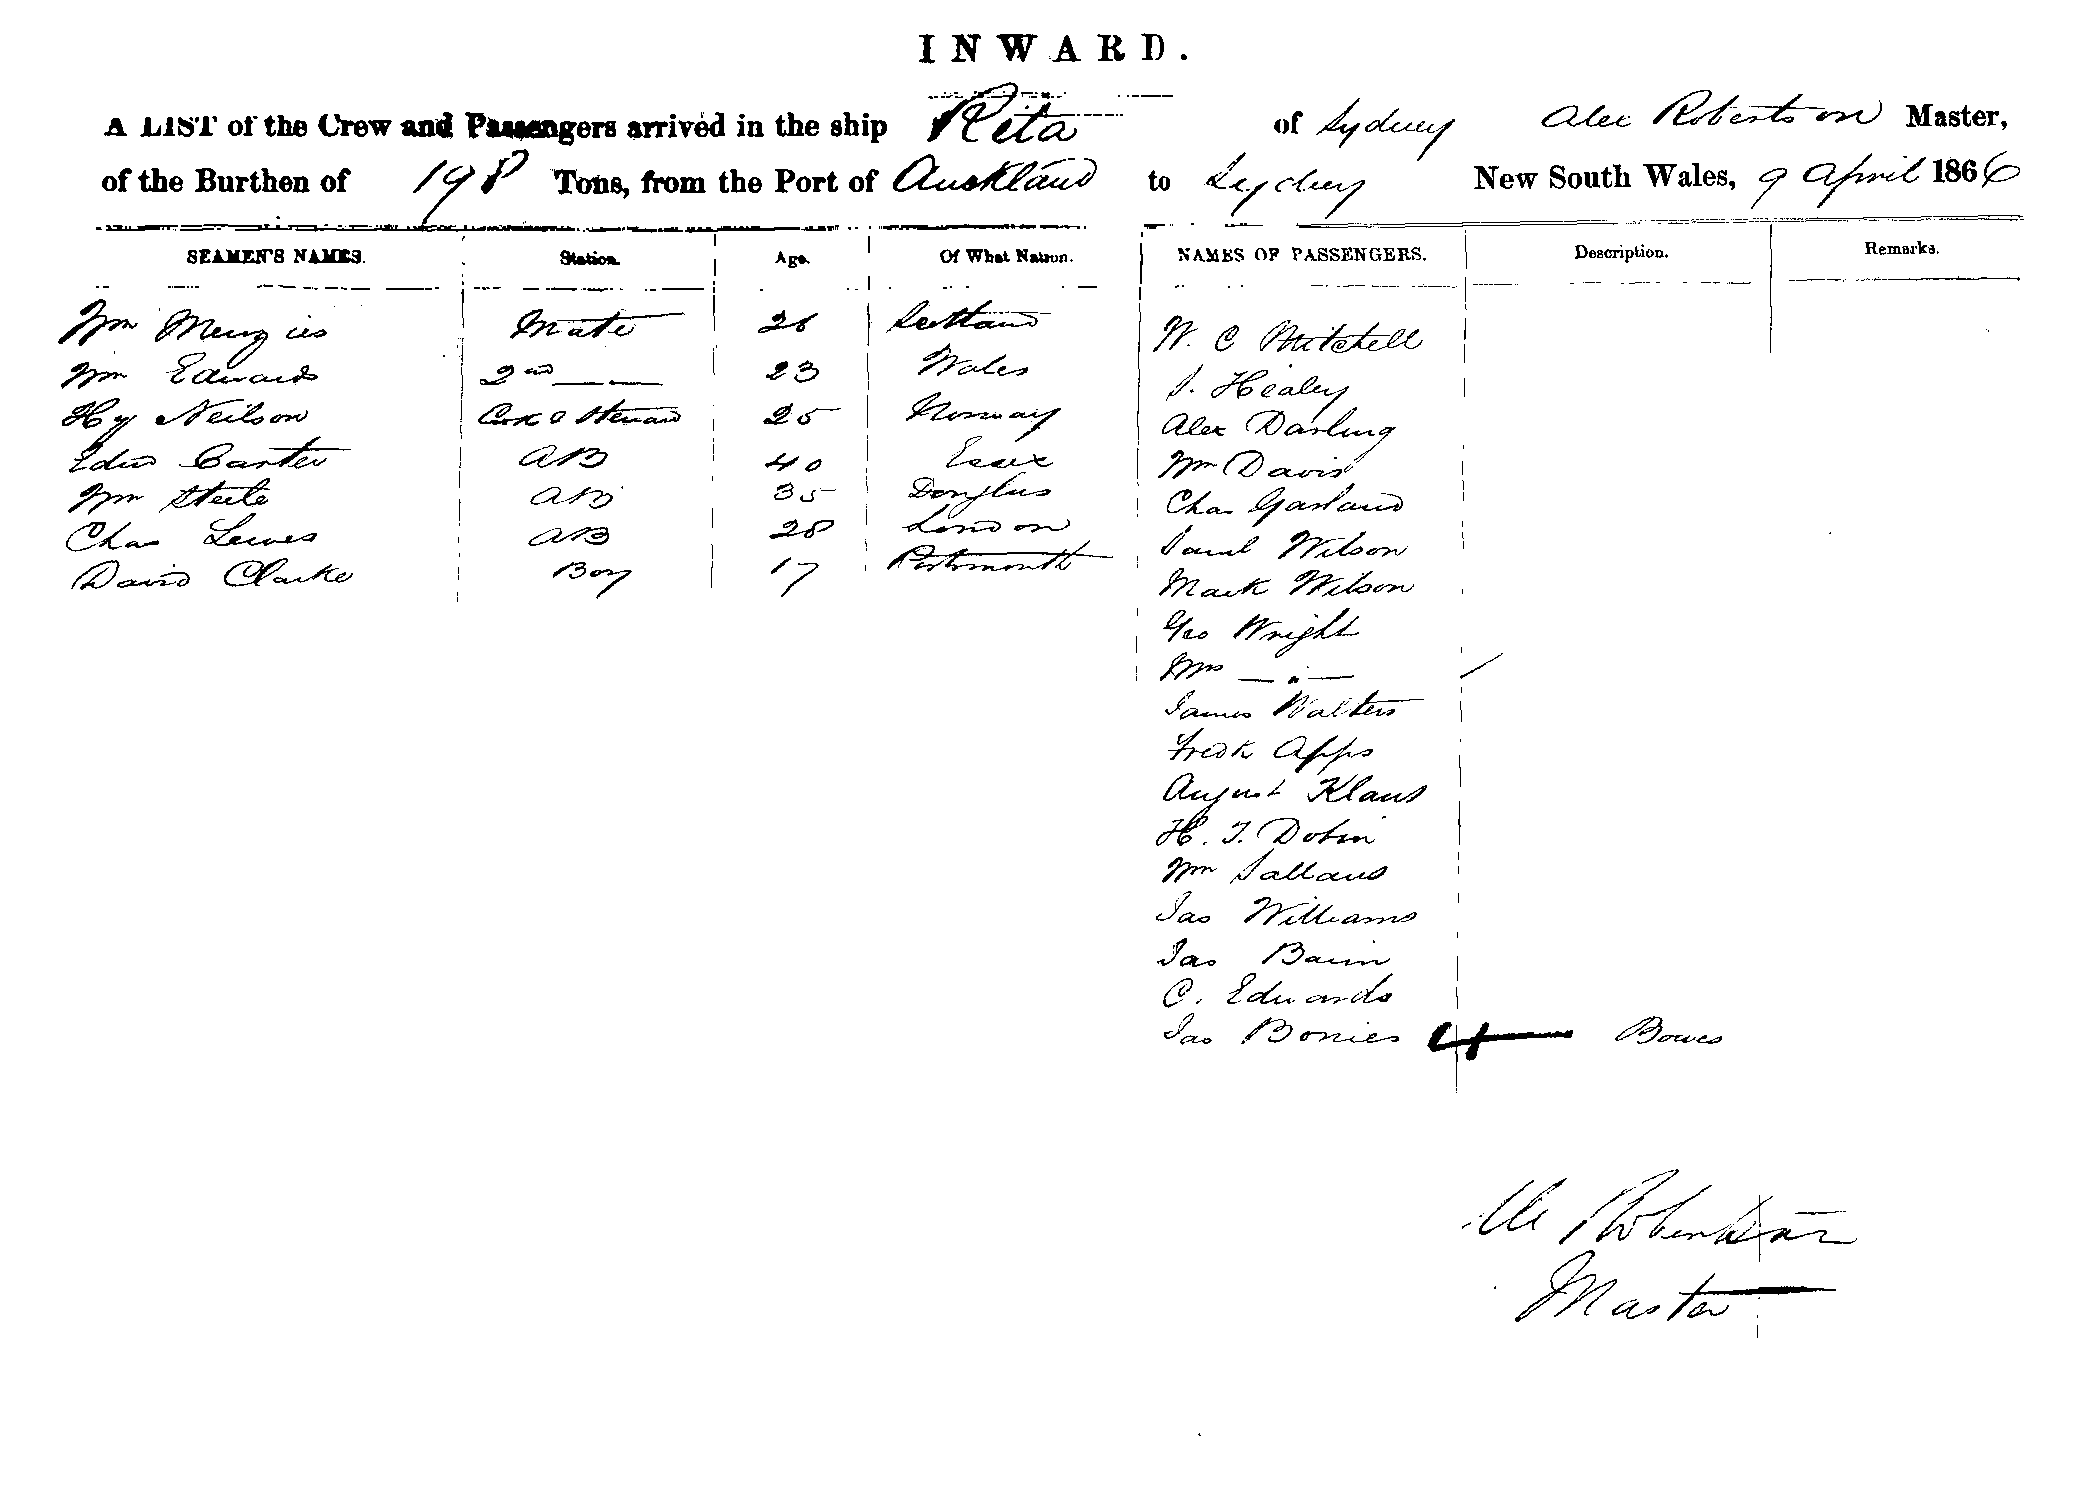 INWARD.
A LIST of the Crew and Passengers arrived in the ship Rita of Sydney Alex Robertson Master,
of the Burthen of 198 Tons, from the Port of Auckland to Sydney New South Wales, 9 April 1866
SEAMEN'S NAMES. Station. Age. Of What Nation.
Wm Menzies Mate 26 Scotland
Wm Edwards 2nd — — 23 Wales
Hy Neilson Cook & Steward 25 Norway
Edwd Carter AB 40 Essex
Wm Steele AB 35 Douglas
Chas Lewes AB 28 London
David Clarke Boy 17 Portsmouth
NAMES OF PASSENGERS. Description. Remarks.
W. C Mitchell
J. Healey
Alex Darling
Wm Davis
Chas Garland
Saml Wilson
Mark Wilson
Geo Wright
Mrs — " —
James Walters
Fredk Apps
August Klaus
H. T. Dobin
Wm
Jas Williams
Jas Bain
C. Edwards
Jas Bonies Bowes
Alex Robertson
Master